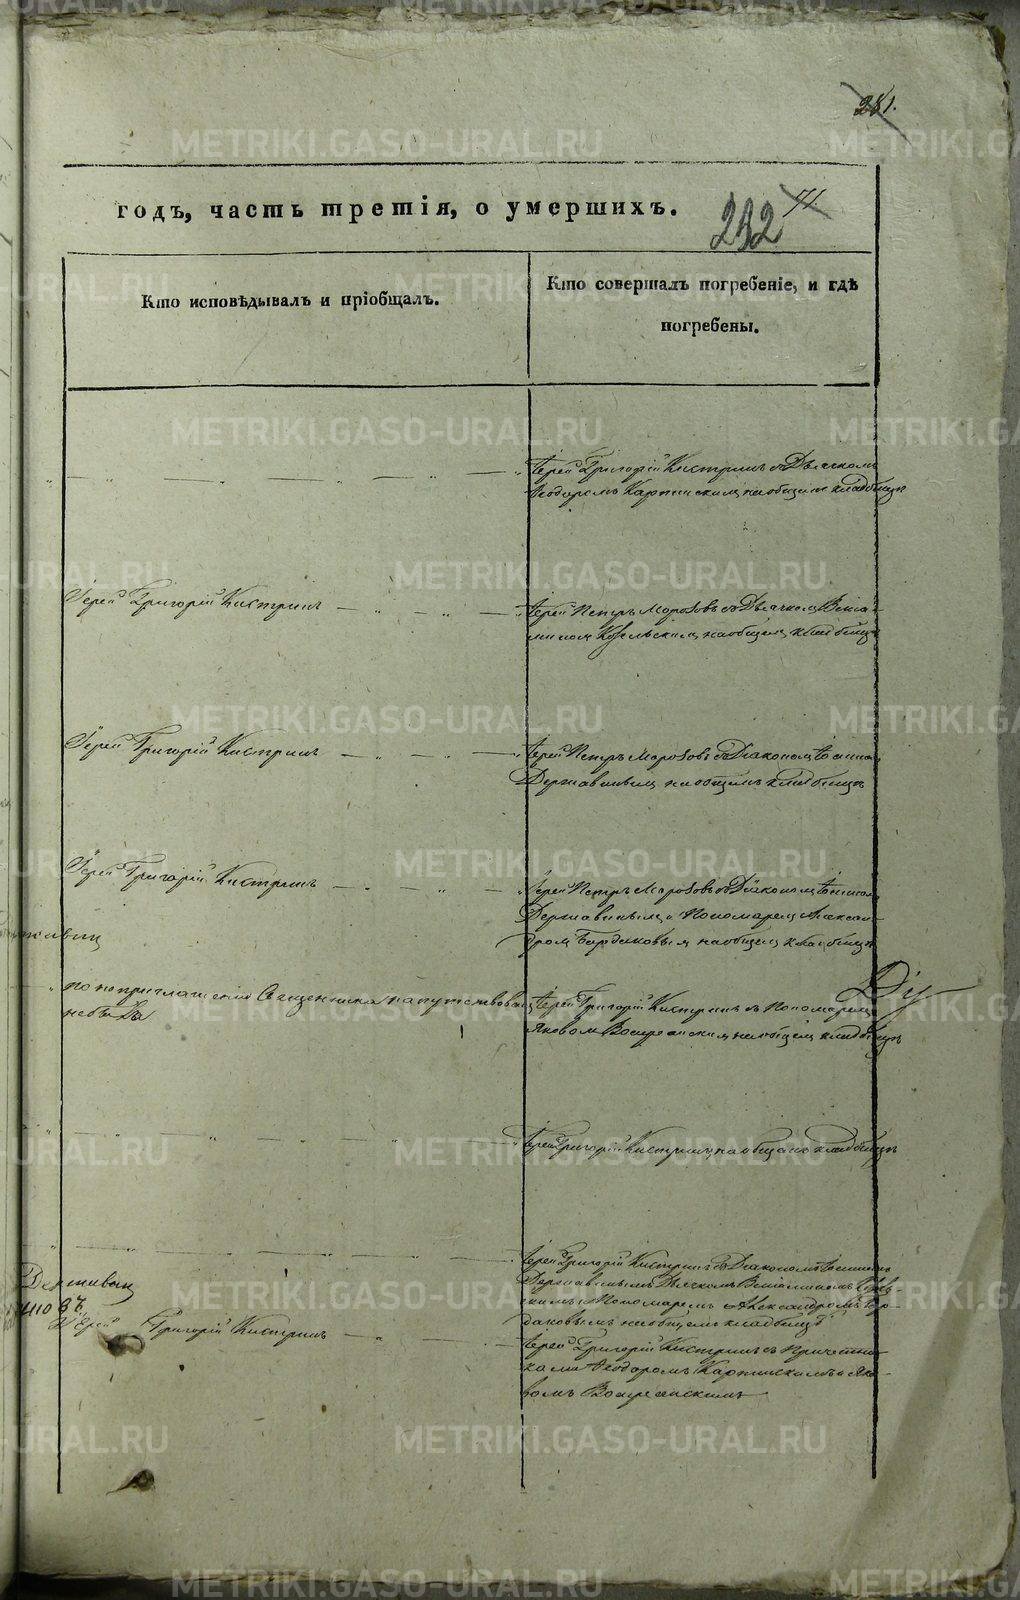 281.
годъ, часть третія, о умершихъ.
71.
232
Кто исповѣдывалъ и пріобщалъ.
Кто совершалъ погребеніе, и гдѣ
погребены.
Іерей Григорій Кистринъ съ Дьячкомъ
Ѳеодоромъ Карпинскимъ на общемъ кладбищѣ
Іерей Григорій Кистринъ
Іерей Петръ Морозовъ съ Дьячкомъ Веніа-
миномъ на общемъ кладбищѣ
Іерей Григорій Кистринъ
Іерей Петръ Морозовъ съ Діакономъ
Державинымъ на общемъ кладбищѣ
Іерей Григорій Кистринъ
Іерей Петръ Морозовъ съ Діакономъ
Державинымъ и Пономаремъ Алексан-
дромъ Бурдаковымъ на общемъ кладбищѣ
по неприглашенію Священника напутствованъ
небылъ
Іерей Григорій Кистринъ съ Пономаремъ
Яковомъ Воскресенскимъ на общемъ кладбищѣ
Іерей Григорій Кистринъ на общемъ кладбищѣ
Іерей Григорій Кистринъ съ Діакономъ
Державинымъ Дьячкомъ Веніаминомъ
скимъ и Пономаремъ Александромъ Бур-
даковымъ на общемъ кладбищѣ
Іерей Григорій Кистринъ
Іерей Григорій Кистринъ съ Причетни-
ками Ѳеодоромъ Карпинскимъ и Яко-
вомъ Воскресенскимъ
METRIKI.GASO-URAL.RU